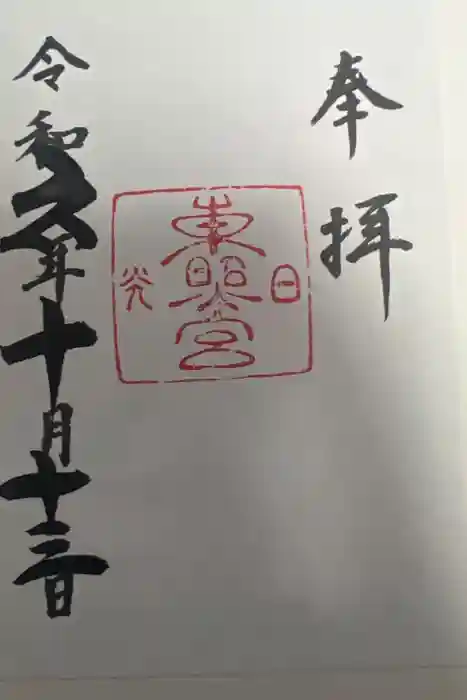 奉拝
日
東照宮
光
令和六年十月十三日